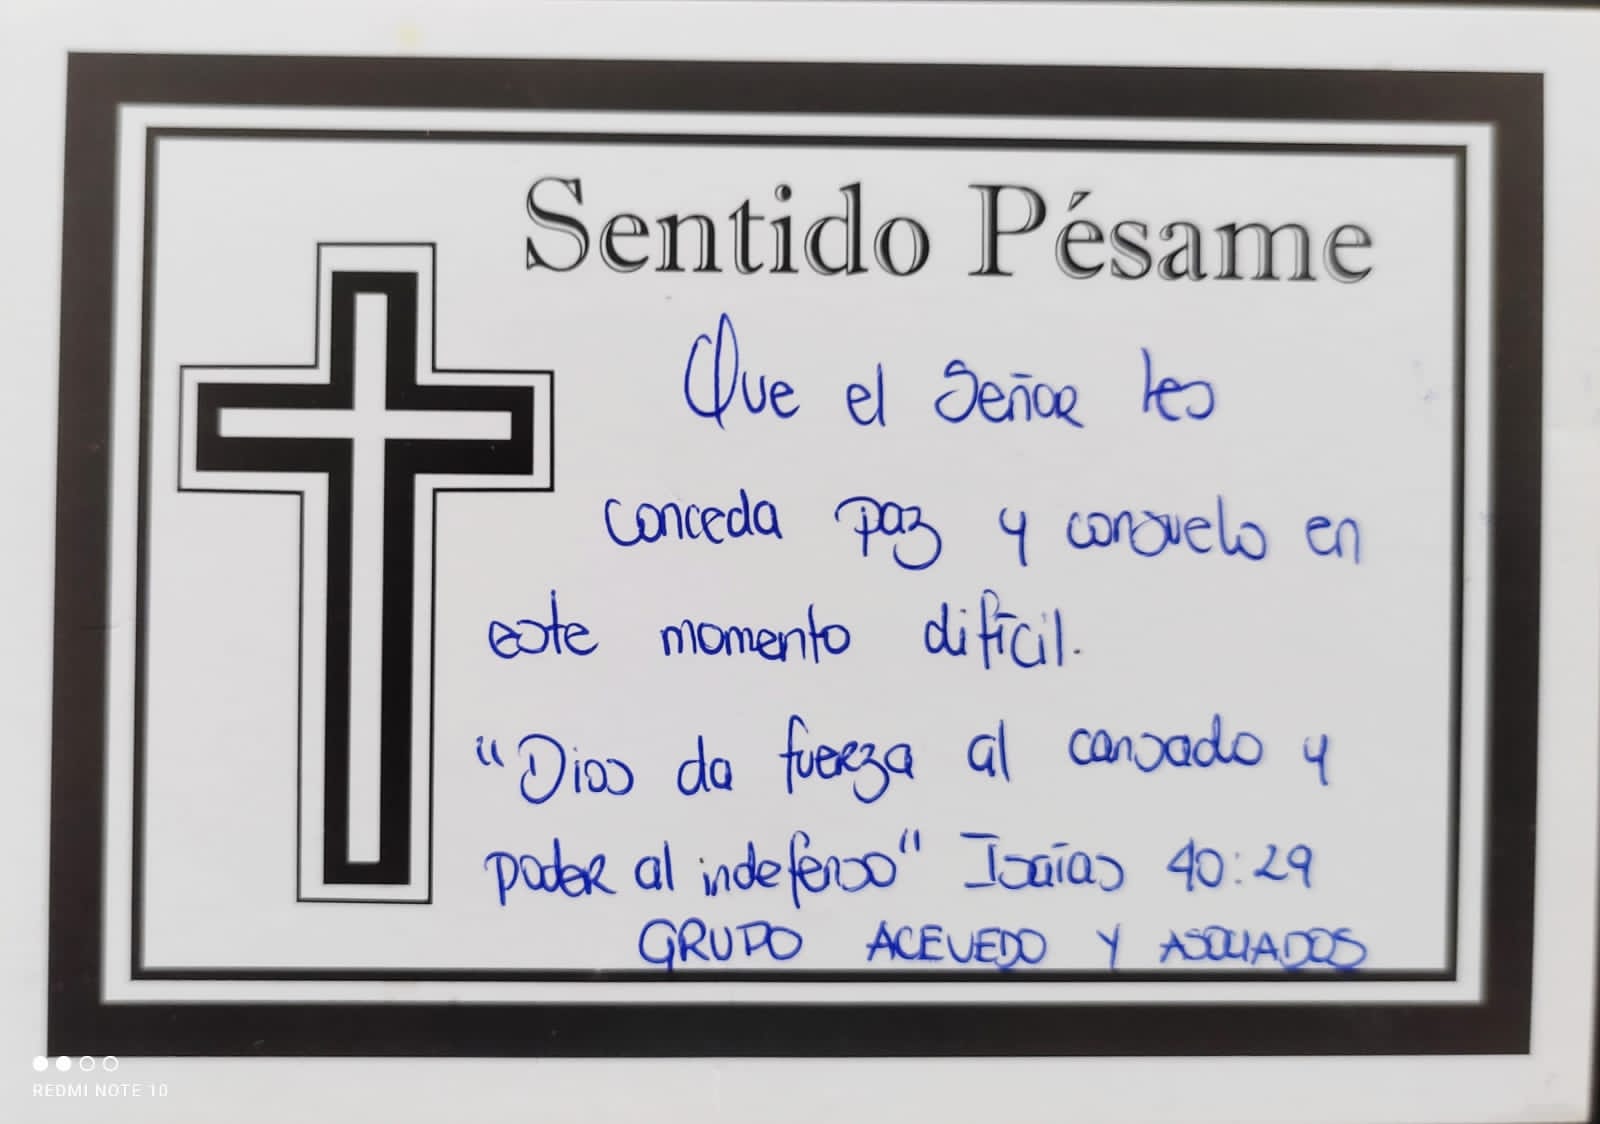 Sentido Pésame
Que el Señor les
conceda paz y consuelo en
este momento difícil.
"Dios da fuerza al cansado y
poder al indefenso" Isaías 40:29
GRUPO ACEVEDO Y ASOCIADOS
REDMI NOTE 10